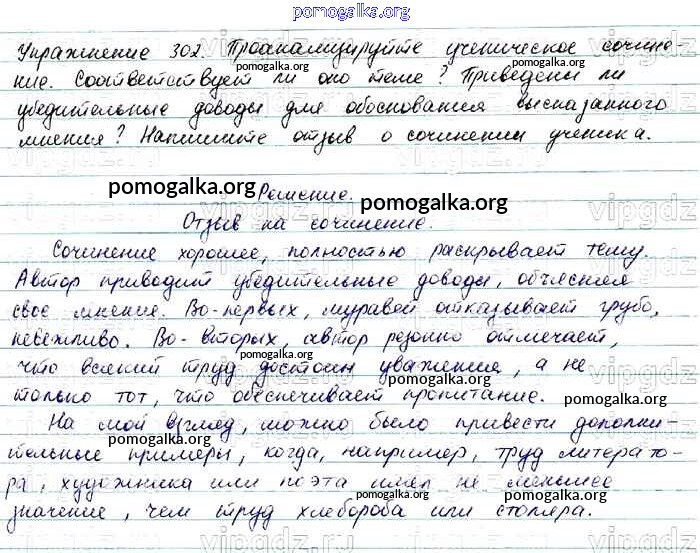 pomogalka.org
Упражнение 302. Проанализируйте ученическое сочине-
ние. Соответствует ли оно теме? Приведены ли
убедительные доводы для обоснования высказанного
мнения? Напишите отзыв о сочинении ученика.
Решение.
Отзыв на сочинение.
Сочинение хорошее, полностью раскрывает тему.
Автор приводит убедительные доводы, объясняя
свое мнение. Во-первых, муравей отказывает грубо,
невежливо. Во-вторых, автор резонно отмечает,
что всякий труд достоин уважения, а не
только тот, что обеспечивает пропитание.
На мой взгляд, можно было привести дополни-
тельные примеры, когда, например, труд литерато-
ра, художника или поэта имел не меньшее
значение, чем труд хлебороба или столяра.